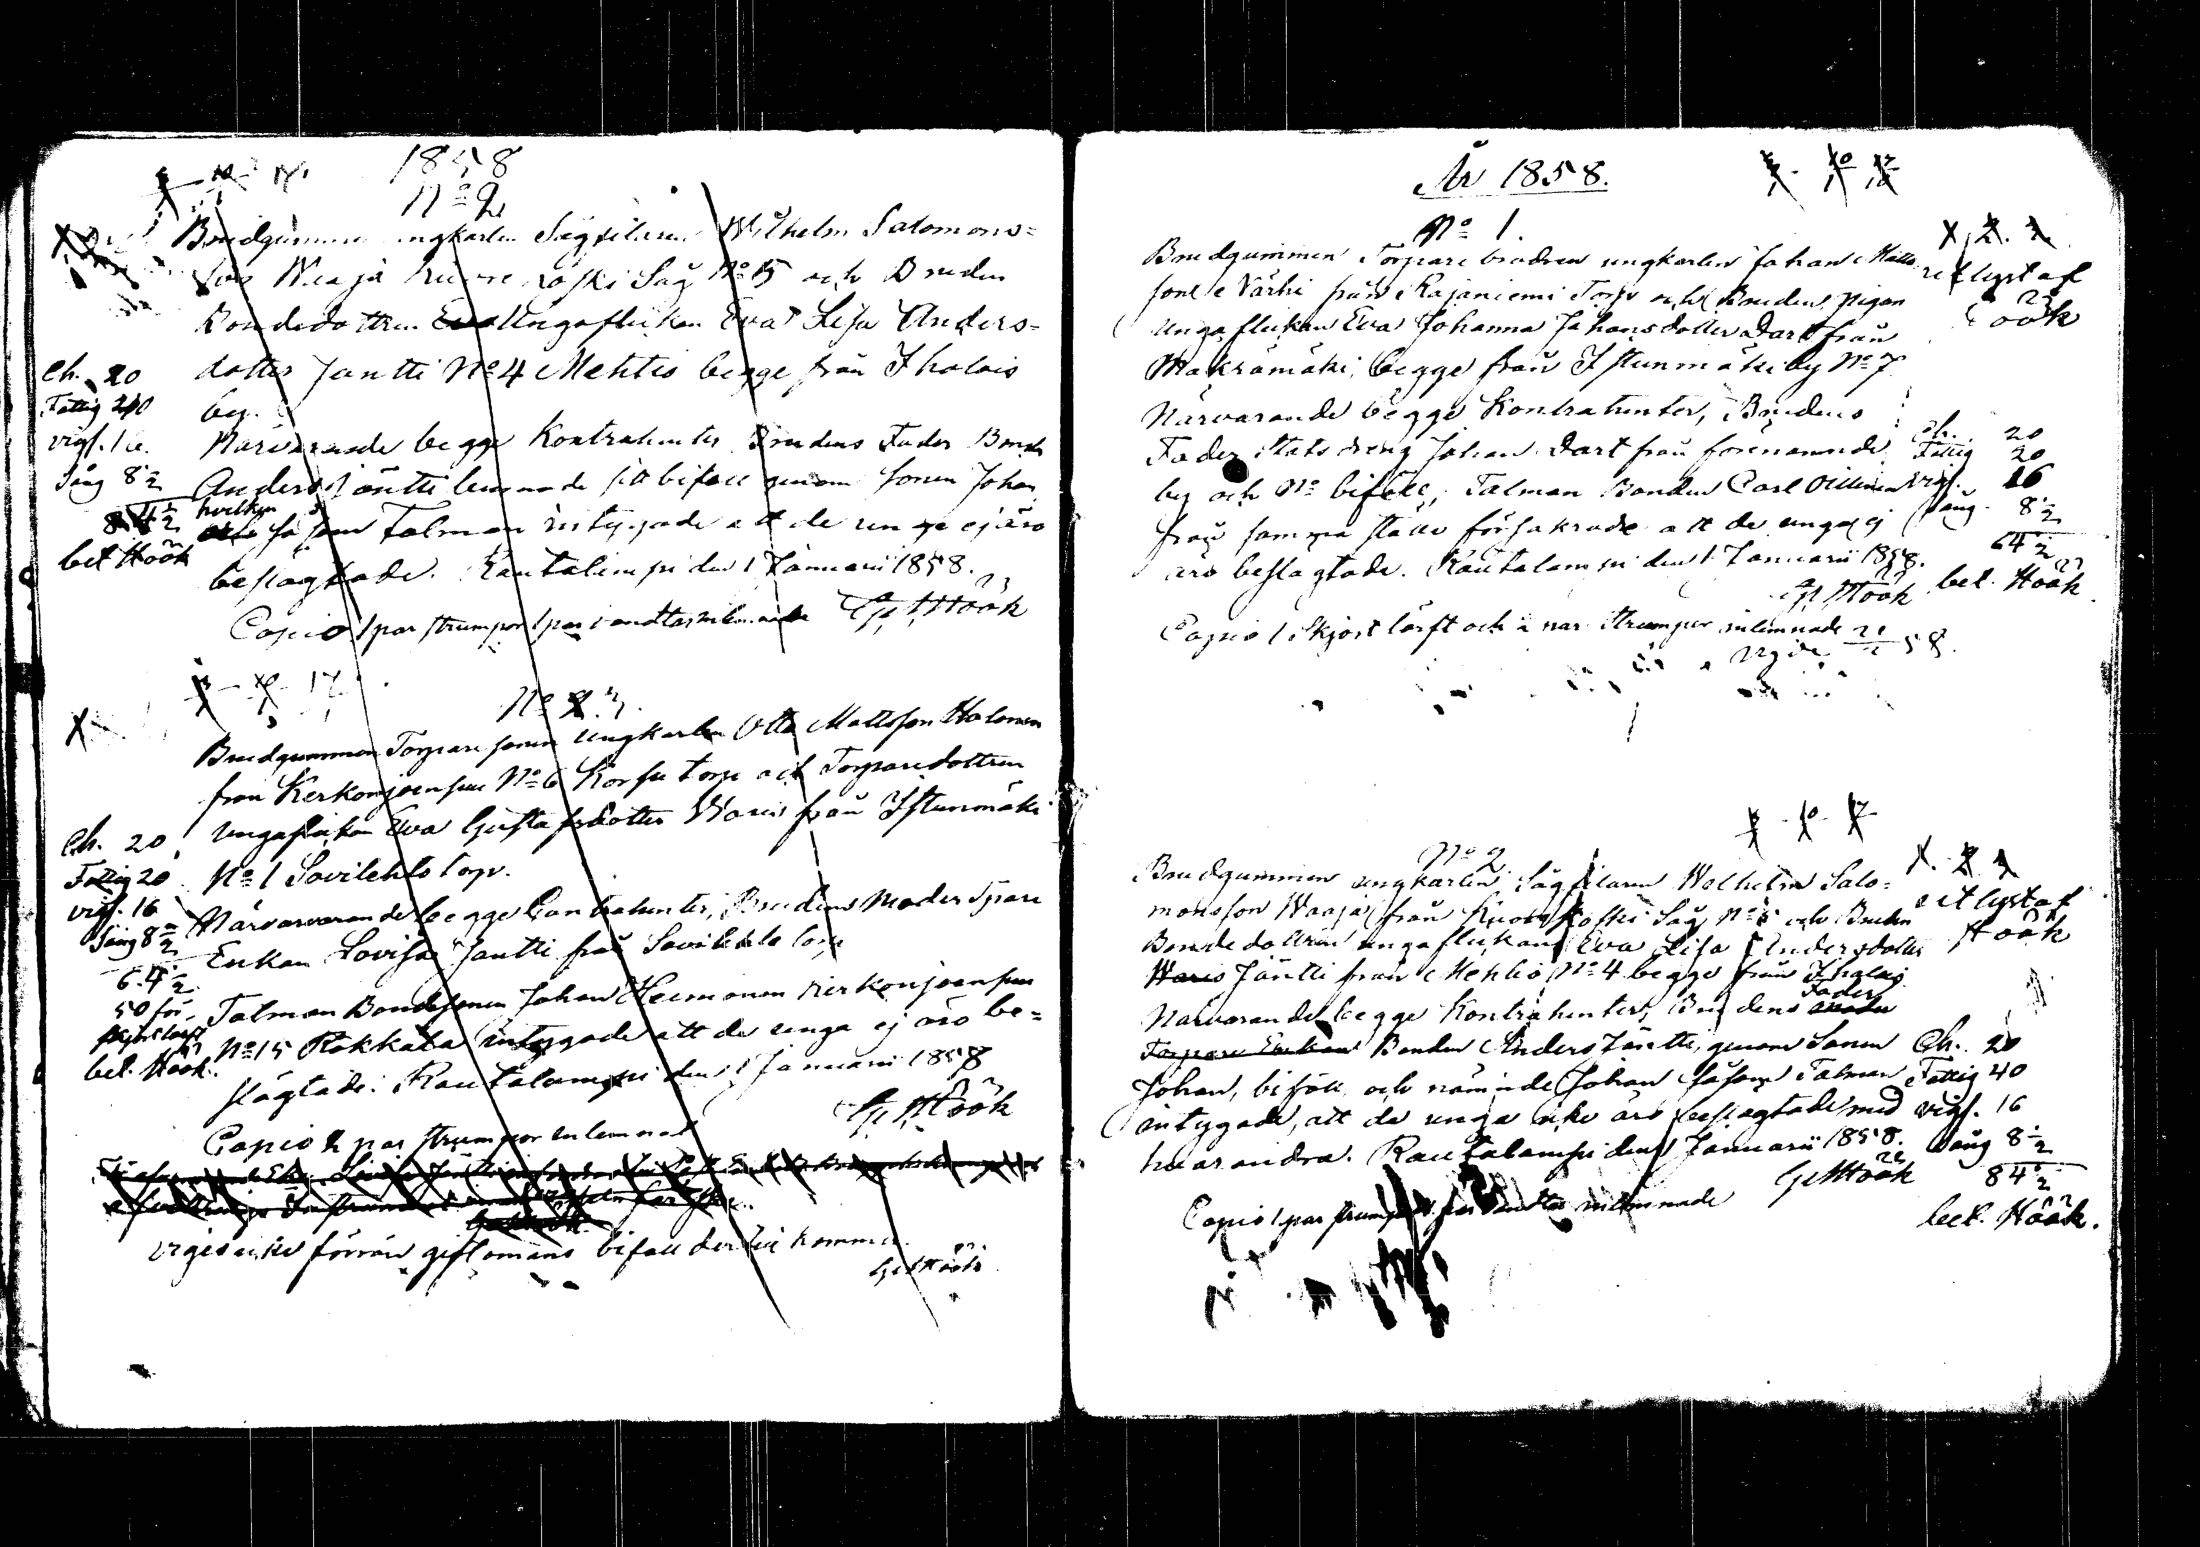 1858
No 2
Brudgummen ungkarlen Sågfilaren Wilhelm Salomons=
son Waaja koski Såg No 15 och Bruden
Bondedottren Ungaflickan Eva Lisa Anders=
dotter Jantti No 4 Mehtio begge från Iholais
by.
Närvarande begge Kontrahenter Brudens Fader Bonden
Anders Jäntti lemnade sitt bifall genom sonen Johan
hvilken
såsom Talman intygade att de unge ej äro
beslagtade. Rautalampi den 1 Januarii 1858.
Copio 1 par strumpor 1 par vandtar inlemnade G. Höök
Ch. 20
Fattig 40
vigs. 16
Sång 8 1/2
84 1/2
bet Höök
No 3.
Brudgummen Torpare sonen Ungkarlen Otto Mattsson Halonen
från Kerkonjoensuu No 6 Korsu torp och Torparedottren
ungaflickan Eva Gustafsdotter Waris från Istunmäki
No 1 Savilehto torp.
Närvarvarande begge Contrahenter, Brudens Moder Tpare
Enkan Lovisa Jantti från Savilehto torp
Talman Bondesonen Johan Heimonen Kerkonjoensuu
No 15 Rokkala intygade att de unga ej äro be=
slägtade. Rautalampi den 1 Januarii 1858
G. Höök
Copio 2 par strumpor inlemnat
viges icke förrän giftomans bifall dertill kommer.
G. Höök
Ch. 20
Fattig 20
vigs. 16
Sång 8 1/2
64 1/2
50 för
skjortlarft
bet. Höök.
År 1858.
No 1.
Brudgummen Torpare brodren ungkarlen Johan Matts
sone Närhi från Rajaniemi Torp och Bruden pigan
Unga flickan Eva Johanna Johansdotter Dart från
Makramäki, begge från Istunmäki by No 7
Närvarande begge Kontrahenter, Brudens
Fader Statsdreng Johan Dart från förenämnde
by och No bifall, Talman Bonden Carl Oillinen
från samma ställe försäkrade att de unga ej
äro beslagtade. Rautalampi den 1 Januarii 1858.
G. Höök
Copio 1 skjort lärft och 2 par strumpor inlemnade
utlyst af
Höök
Ch. 20
Fattig 20
vigs. 16
Sång 8 1/2
64 1/2
bet. Höök
No 2
Brudgummen ungkarlen Sågfilaren Wilhelm Salo=
monsson Waaja från koski Såg No 5 och Bruden
Bondedottren ungaflickan Eva Lisa Andersdotter
Waris Jäntti från Mehtio No 4 begge från Iholais
Närvarande begge Kontrahenter, Brudens Fader
Torpare Enkan Bonden Anders Jäntti, genom Sonen
Johan, bifall och nämnde Johan såsom Talman
intygade, att de unga icke äro beslagtade med
hvarandra. Rautalampi den 1 Januarii 1858.
G. Höök
Copio 1 par strumpor 1 par vandtar inlemnade
utlyst af
Höök
Ch. 20
Fattig 40
vigs. 16
Sång 8 1/2
84 1/2
bet. Höök.